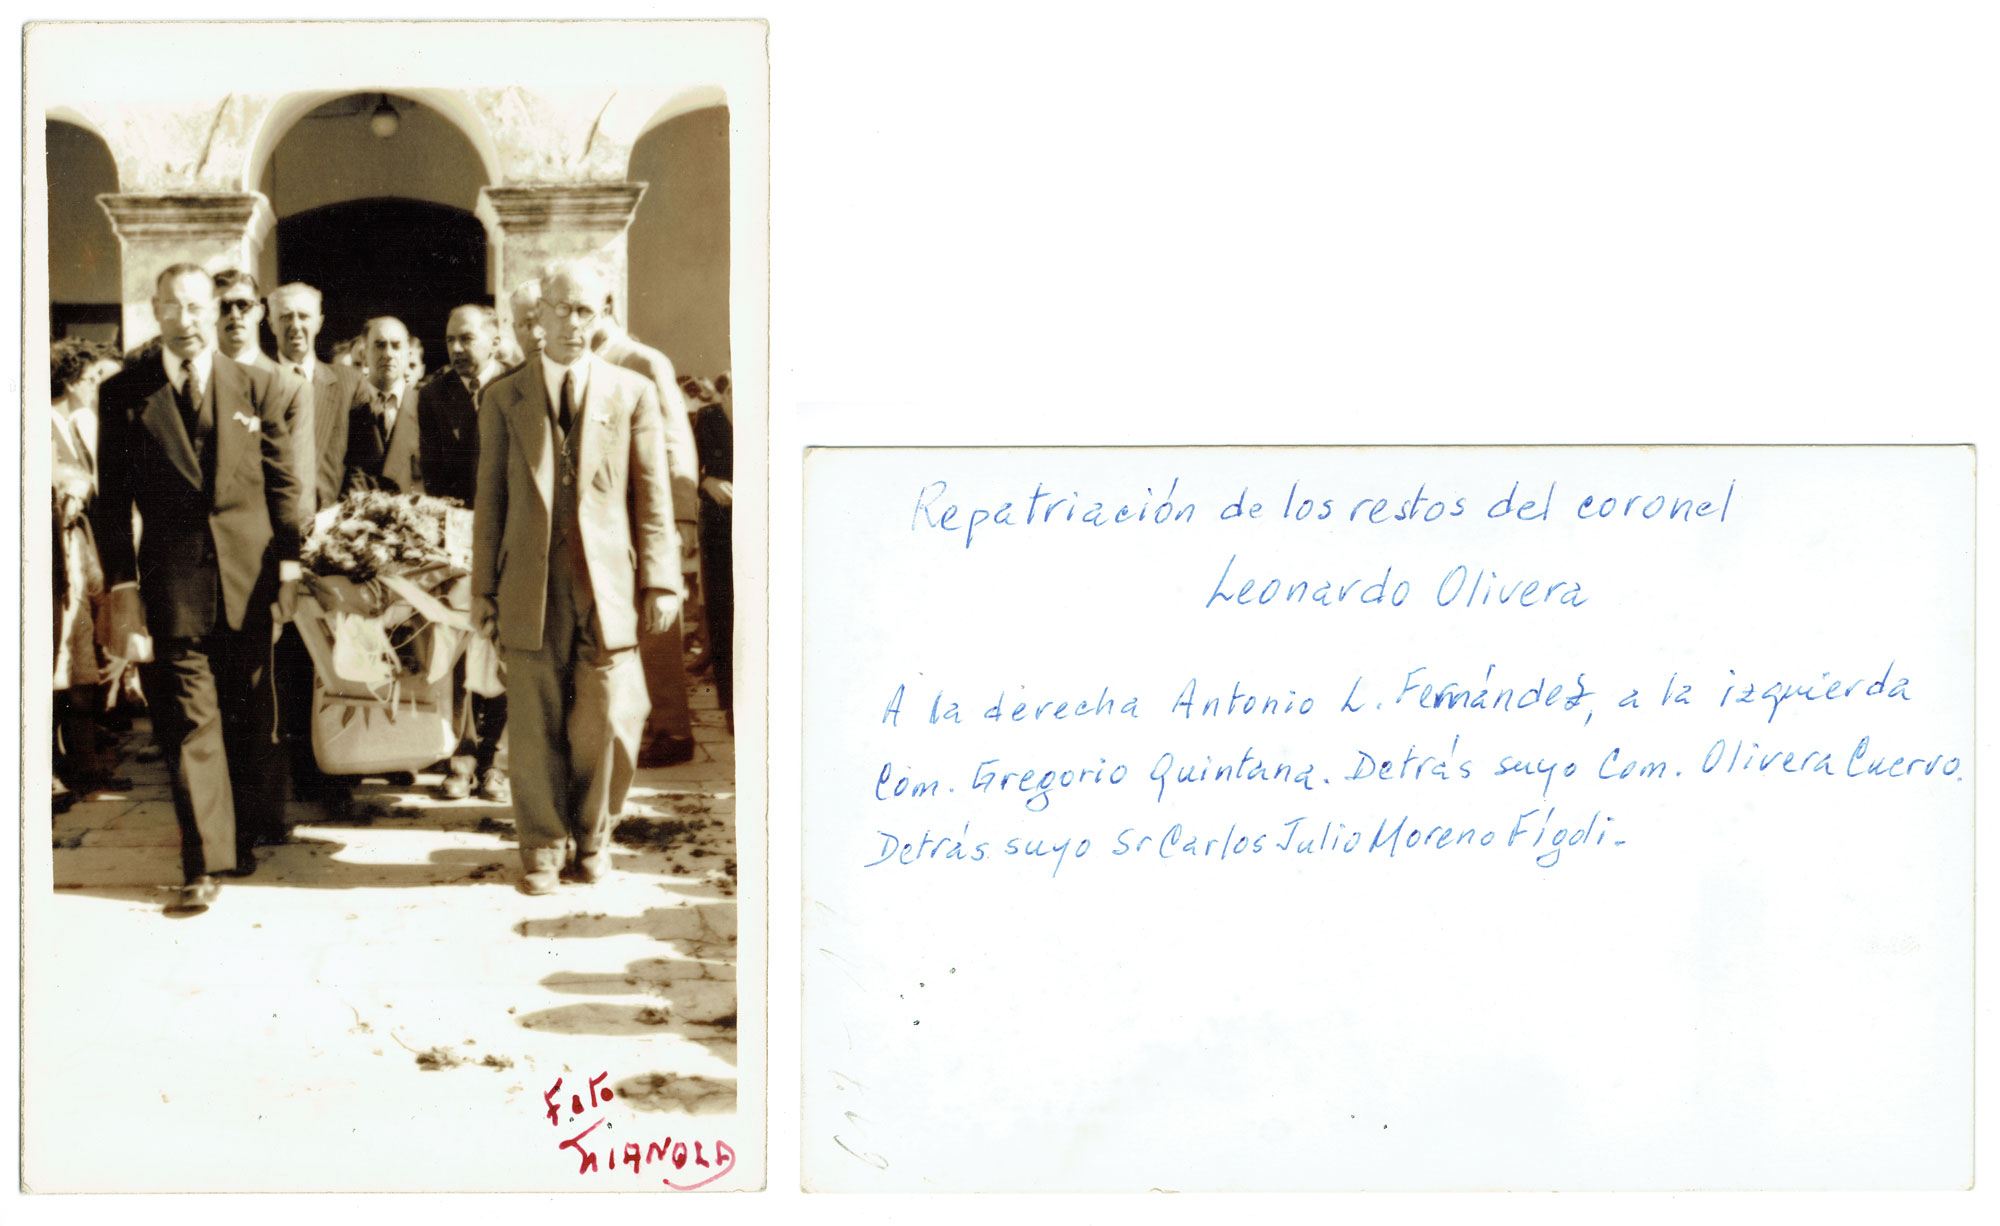 Foto
Repatriación de los restos del coronel
Leonardo Olivera
A la derecha Antonio L. Fernández, a la izquierda
Com. Gregorio Quintana. Detrás suyo Com. Olivera Cuervo.
Detrás suyo Sr Carlos Julio Moreno Fígoli.